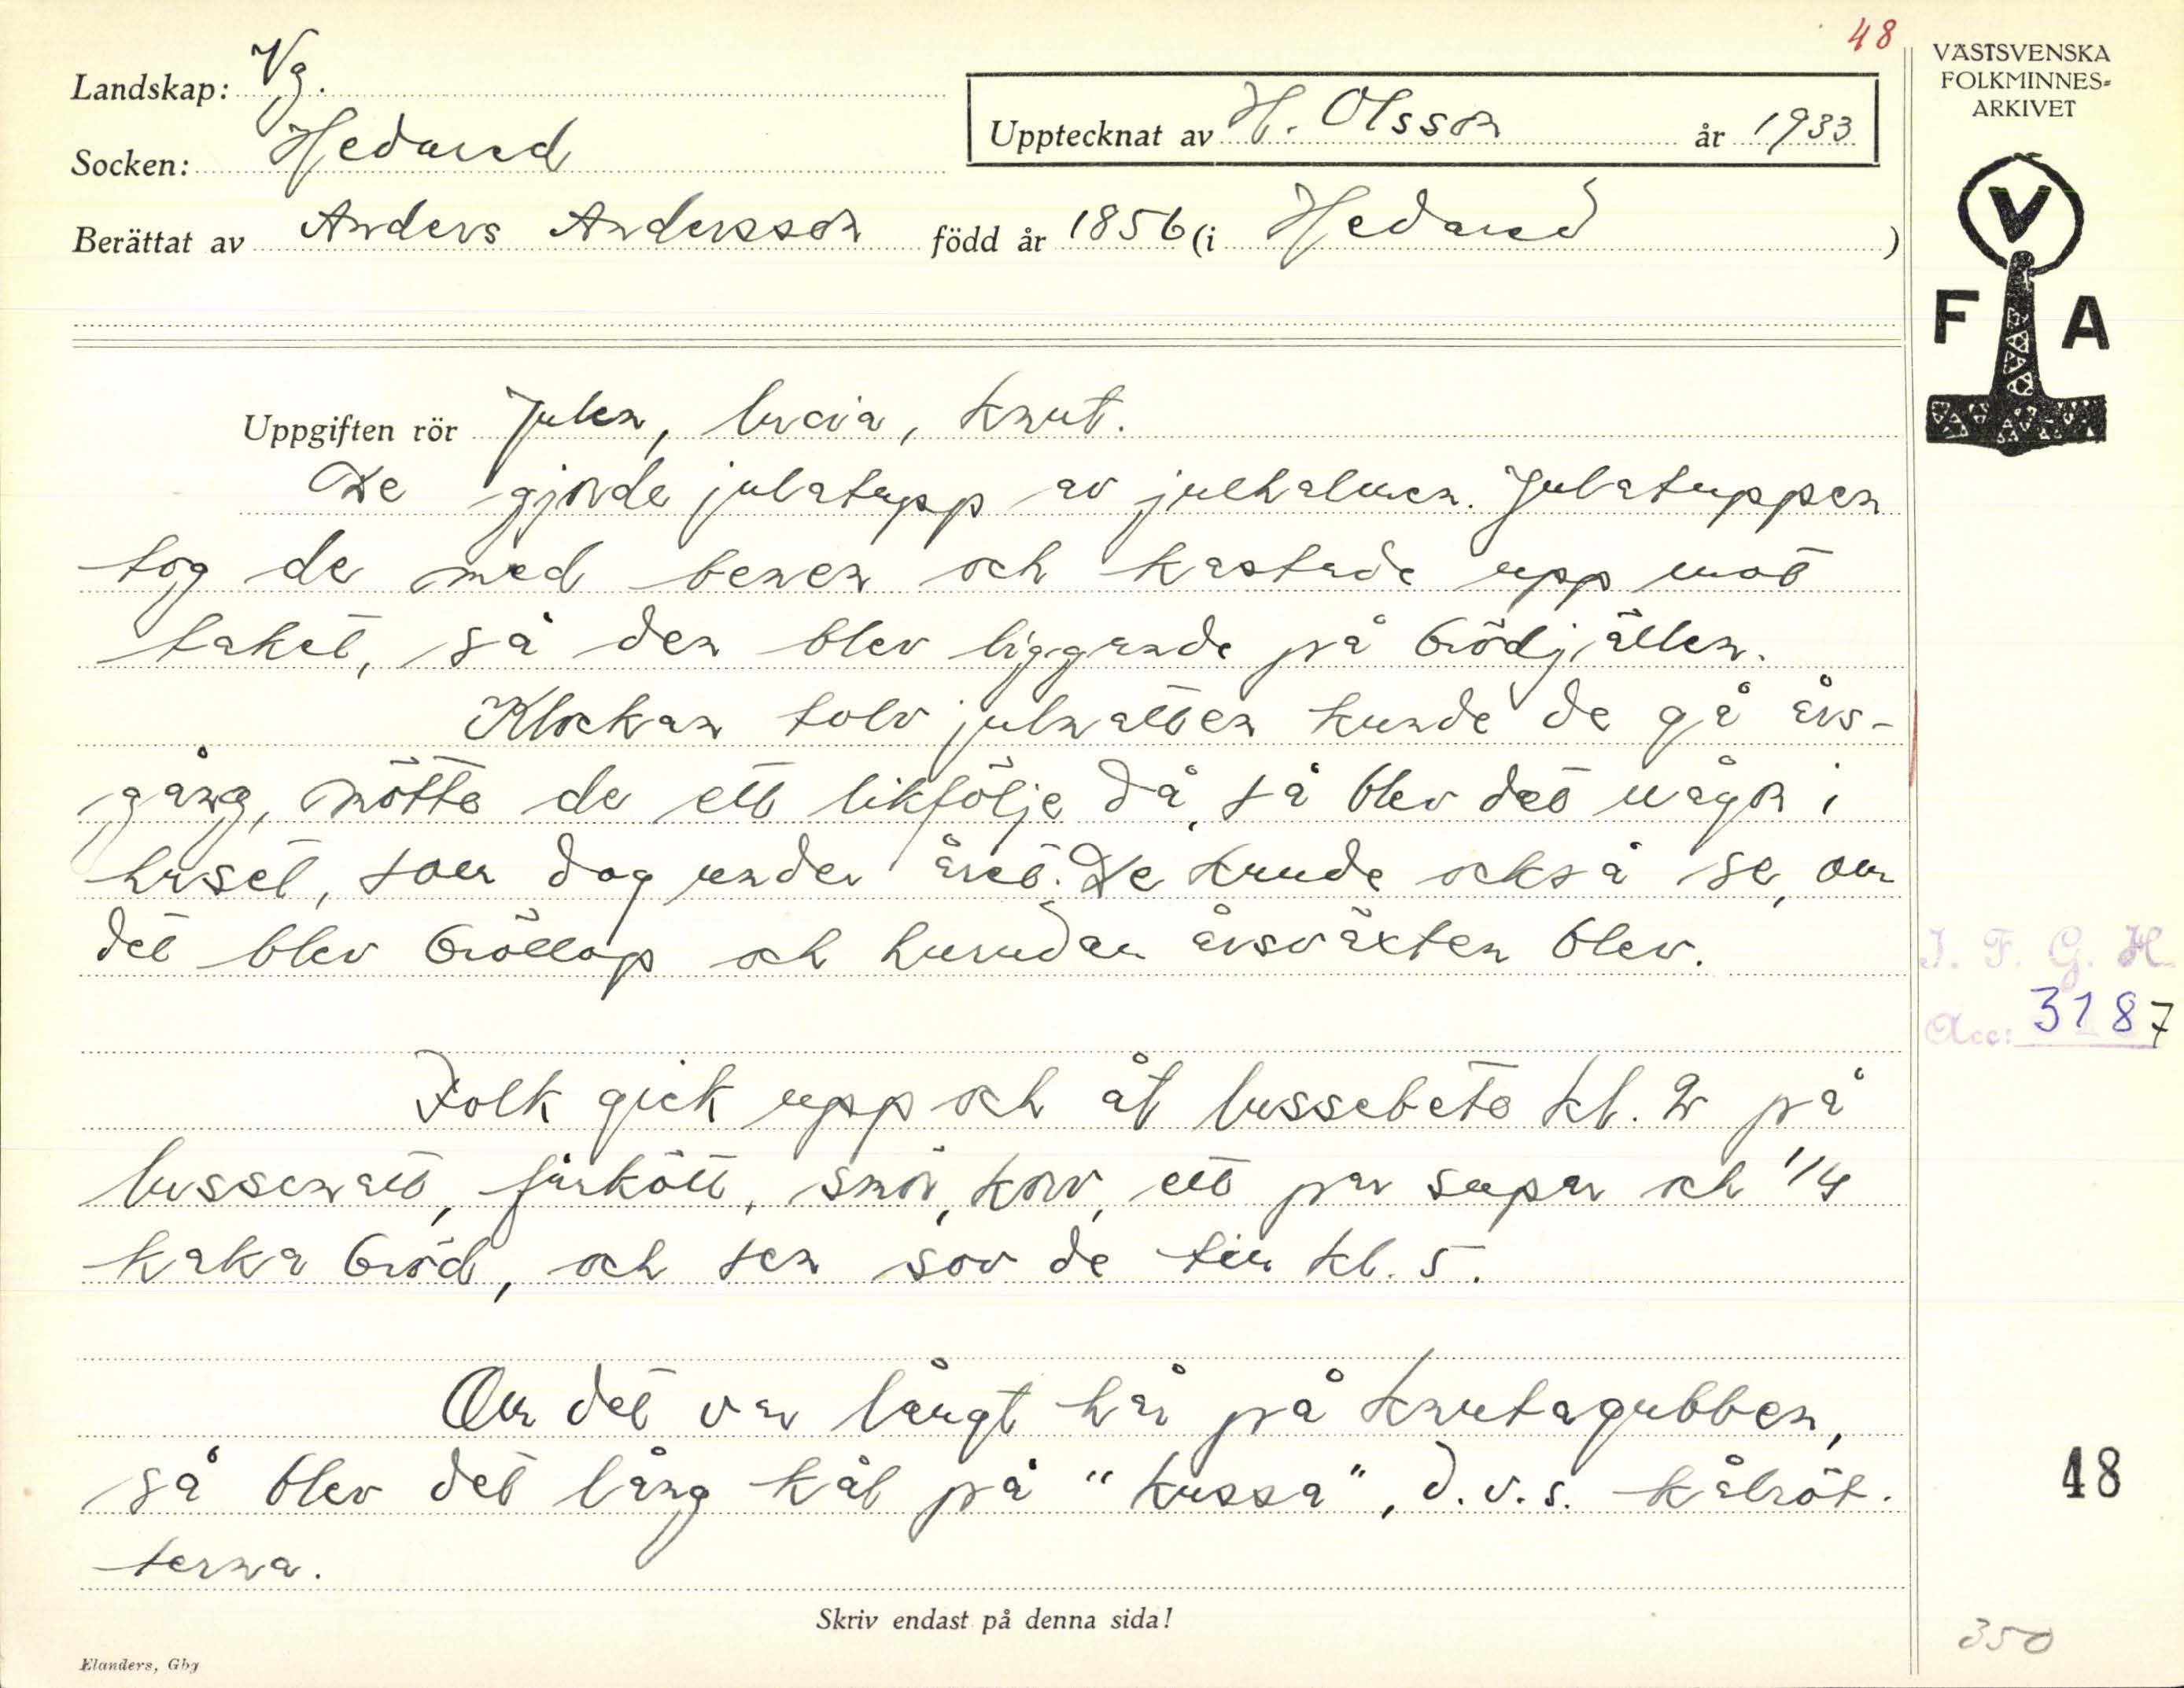 48
Landskap: Vg.
Socken: Hedared
Upptecknat av H. Olsson år 1933
Berättat av Anders Andersson född år 1856 (i Hedared)
VÄSTSVENSKA
FOLKMINNES=
ARKIVET
V
F A
Uppgiften rör Julen, lucia, knut.
De gjorde julatupp av julhalmen. Julatuppen
tog de med benen och kastade upp mot
taket, så den blev liggande på brödjällen.
Klockan tolv julnatten kunde de gå års-
gång, mötte de ett likfölje då, så blev det någon i
huset, som dog under året. De kunde också se, om
det blev bröllop och hurudan årsväxten blev.
I. F. G. H.
Acc: 3187
Folk gick upp och åt lussebete kl. 2 på
lussenatt, fårkött, smör, korv, ett par supar och 1/4
kaka bröd, och sen sov de till kl. 5.
Om det var långt hår på knutagubben,
så blev det lång kål på "kussa", d.v.s. kålröt.
terna.
48
Skriv endast på denna sida!
350
Elanders, Gbg